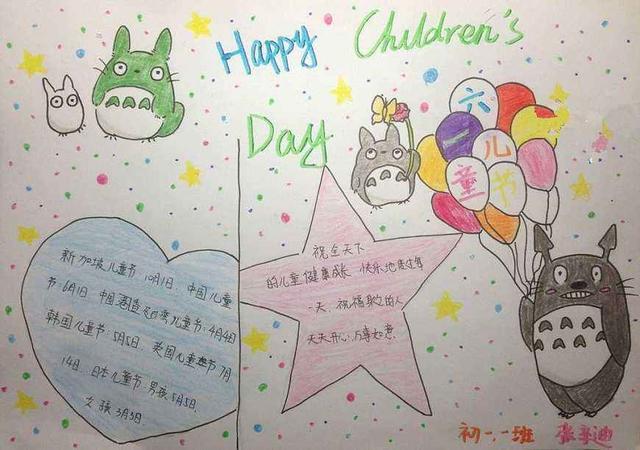 Happy Children's
Day
六
一儿
童节
新加坡儿童节10月1日、中国儿童
节·6月1日 中国港澳台湾儿童节·4月4日
韩国儿童节:5月5日 英国儿童节7月
14日、日本儿童节·男孩5月5日、
女孩3月3日.
祝全天下
的儿童健康成长 快乐地度过每
一天、祝福
的人
天天开心、万事如意.
初一.一班 张
迪